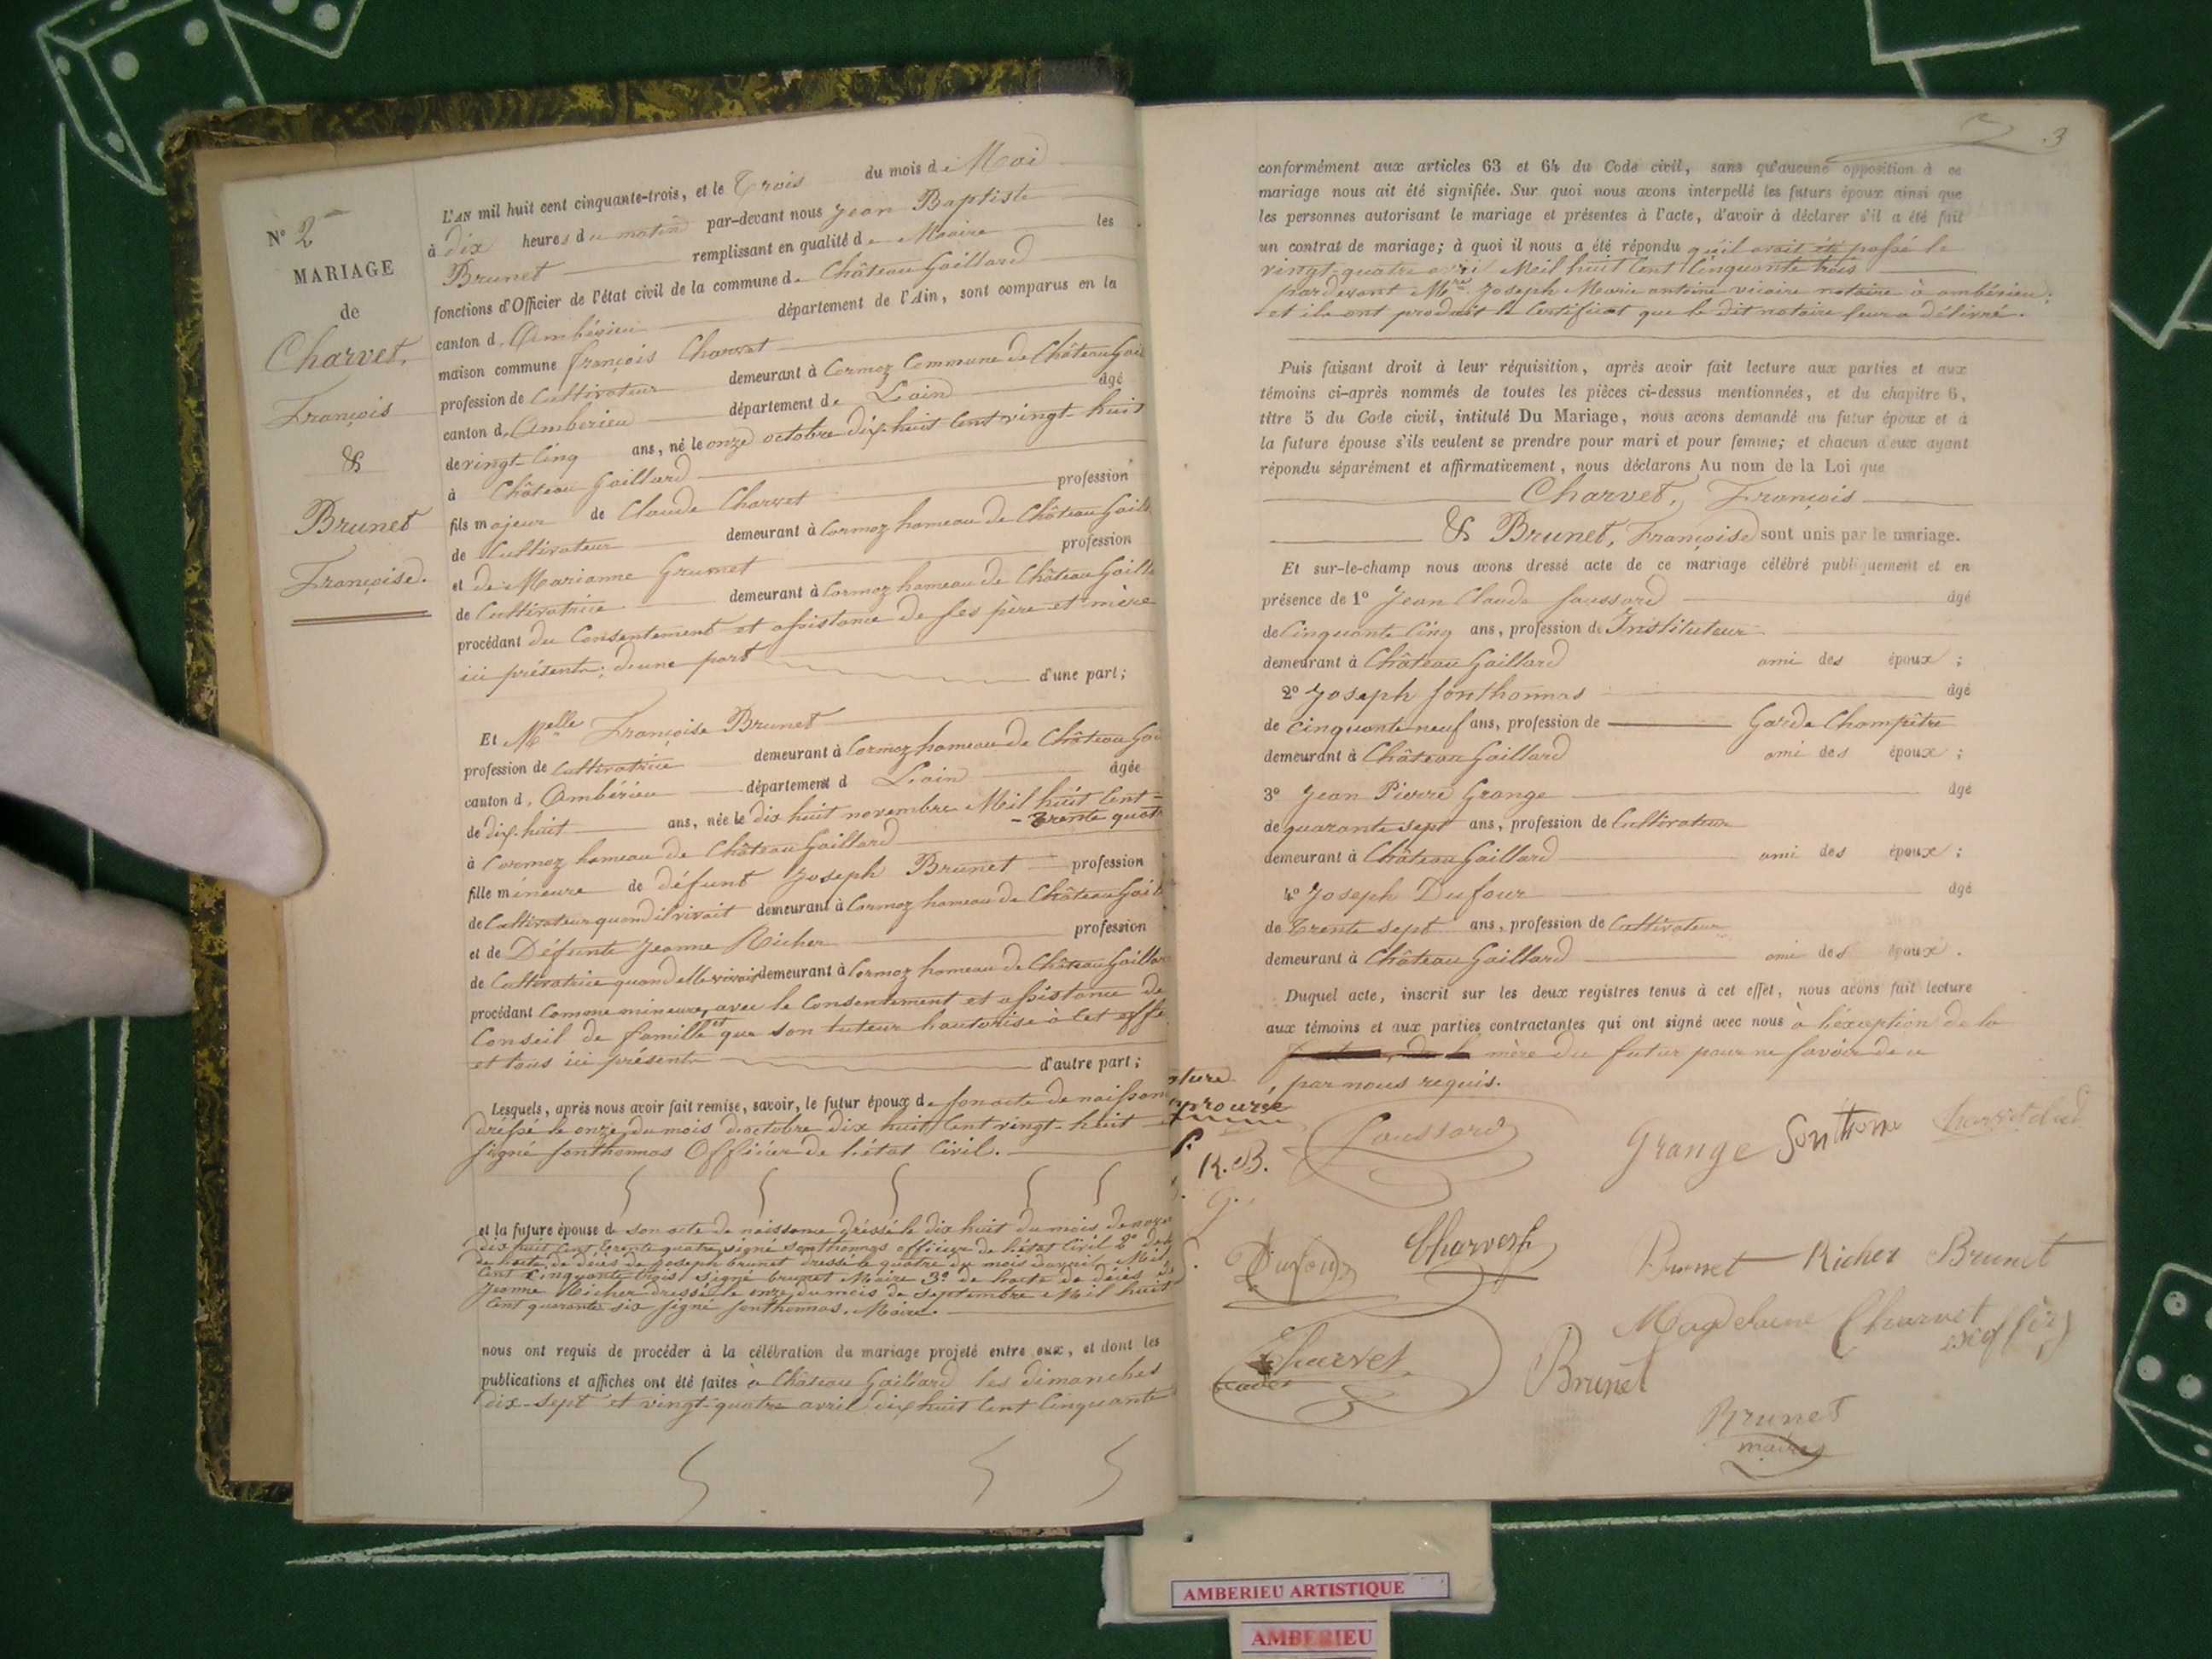 N° 2
MARIAGE
de
Charvet,
François
&
Brunet
Françoise.
L'AN mil huit cent cinquante-trois, et le Trois du mois de Mai
à dix heures du matin par-devant nous Jean Baptiste
Brunet remplissant en qualité de Maire les
fonctions d'Officier de l'état civil de la commune de Château Gaillard
canton d'Ambérieu département de l'Ain, sont comparus en la
maison commune françois Charvet
profession de Cultivateur demeurant à Cormoz Commune de Château Gail
canton d'Ambérieu département de Lain âgé
de vingt-Cinq ans, né le onze octobre dix-huit Cent vingt-huit
à Château Gaillard
fils majeur de Claude Charvet profession
de Cultivateur demeurant à Cormoz hameau de Château Gaill
et de Marianne Grumet profession
de Cultivatrice demeurant à Cormoz hameau de Château Gaill
procédant du Consentement et assistance de ses père et mère
ici présents; d'une part d'une part;
Et Melle Françoise Brunet
profession de Cultivatrice demeurant à Cormoz hameau de Château Gai
canton d'Ambérieu département d Lain âgée
de dix-huit ans, née le dix huit novembre Mil huit Cent =
- Trente quat
à Cormoz hameau de Château Gaillard
fille mineure de défunt Joseph Brunet profession
de Cultivateur quand il vivait demeurant à Cormoz hameau de Château Gail
et de Défunte Jeanne Richer profession
de Cultivatrice quand elle vivait demeurant à Cormoz hameau de Château Gaillar
procédant Comme mineure, avec le Consentement et assistance de
Conseil de famille et que son tuteur hautorise à Cet effe
et tous ici présents d'autre part;
Lesquels, après nous avoir fait remise, savoir, le futur époux de son acte de naissan
dressé le onze du mois d'octobre dix huit Cent vingt-huit
signé sonthonnas Officier de l'état Civil.
et la future épouse d son acte de naissance dréssé le dix huit du mois de nov
dix huit Cent Trente quatre signé sonthonnas officier de l'état Civil 2°
de l'acte de décès de Joseph brunet dressé le quatre du mois d'avril Mil
Cent Cinquante trois signé brunet Maire 3° de l'acte de décès de
Jeanne Richer dressé le onze du mois de Septembre Mil huit
Cent quarante six signé sonthonnas, Maire.
nous ont requis de procéder à la célébration du mariage projeté entre eux, et dont les
publications et affiches ont été faites à Château Gaillard les dimanches
dix-sept et vingt-quatre avril dix huit Cent Cinquante
3
conformément aux articles 63 et 64 du Code civil, sans qu'aucune opposition à ce
mariage nous ait été signifiée. Sur quoi nous avons interpellé les futurs époux ainsi que
les personnes autorisant le mariage et présentes à l'acte, d'avoir à déclarer s'il a été fait
un contrat de mariage; à quoi il nous a été répondu qu'il avait été passé le
vingt-quatre avril Mil huit Cent Cinquante trois
pardevant Mtre Joseph Marie antoine vicaire notaire à ambérieu;
et ils ont produit le Certificat que le dit notaire leur a délivré.
Puis faisant droit à leur réquisition, après avoir fait lecture aux parties et aux
témoins ci-après nommés de toutes les pièces ci-dessus mentionnées, et du chapitre 6,
titre 5 du Code civil, intitulé Du Mariage, nous avons demandé au futur époux et à
la future épouse s'ils veulent se prendre pour mari et pour femme; et chacun d'eux ayant
répondu séparément et affirmativement, nous déclarons Au nom de la Loi que
Charvet, François
& Brunet, Françoise sont unis par le mariage.
Et sur-le-champ nous avons dressé acte de ce mariage célébré publiquement et en
présence de 1° Jean Claude Laussard âgé
de Cinquante Cinq ans, profession de Instituteur
demeurant à Château Gaillard ami des époux;
2° Joseph Sonthonnas âgé
de cinquante neuf ans, profession de Garde Champêtre
demeurant à Château Gaillard ami des époux;
3° Jean Pierre Grange âgé
de quarante sept ans, profession de Cultivateur
demeurant à Château Gaillard ami des époux;
4° Joseph Dufour âgé
de Trente sept ans, profession de Cultivateur
demeurant à Château Gaillard ami des époux.
Duquel acte, inscrit sur les deux registres tenus à cet effet, nous avons fait lecture
aux témoins et aux parties contractantes qui ont signé avec nous à l'éxception de la
mère du futur pour ne savoir de ce
, par nous requis.
R.B.
Laussard
Grange
Dufour
Charvet
Brunet Richer Brunet
Magdelaine Charvet
Charvet
Brunet
Brunet
maire
AMBERIEU ARTISTIQUE
AMBERIEU